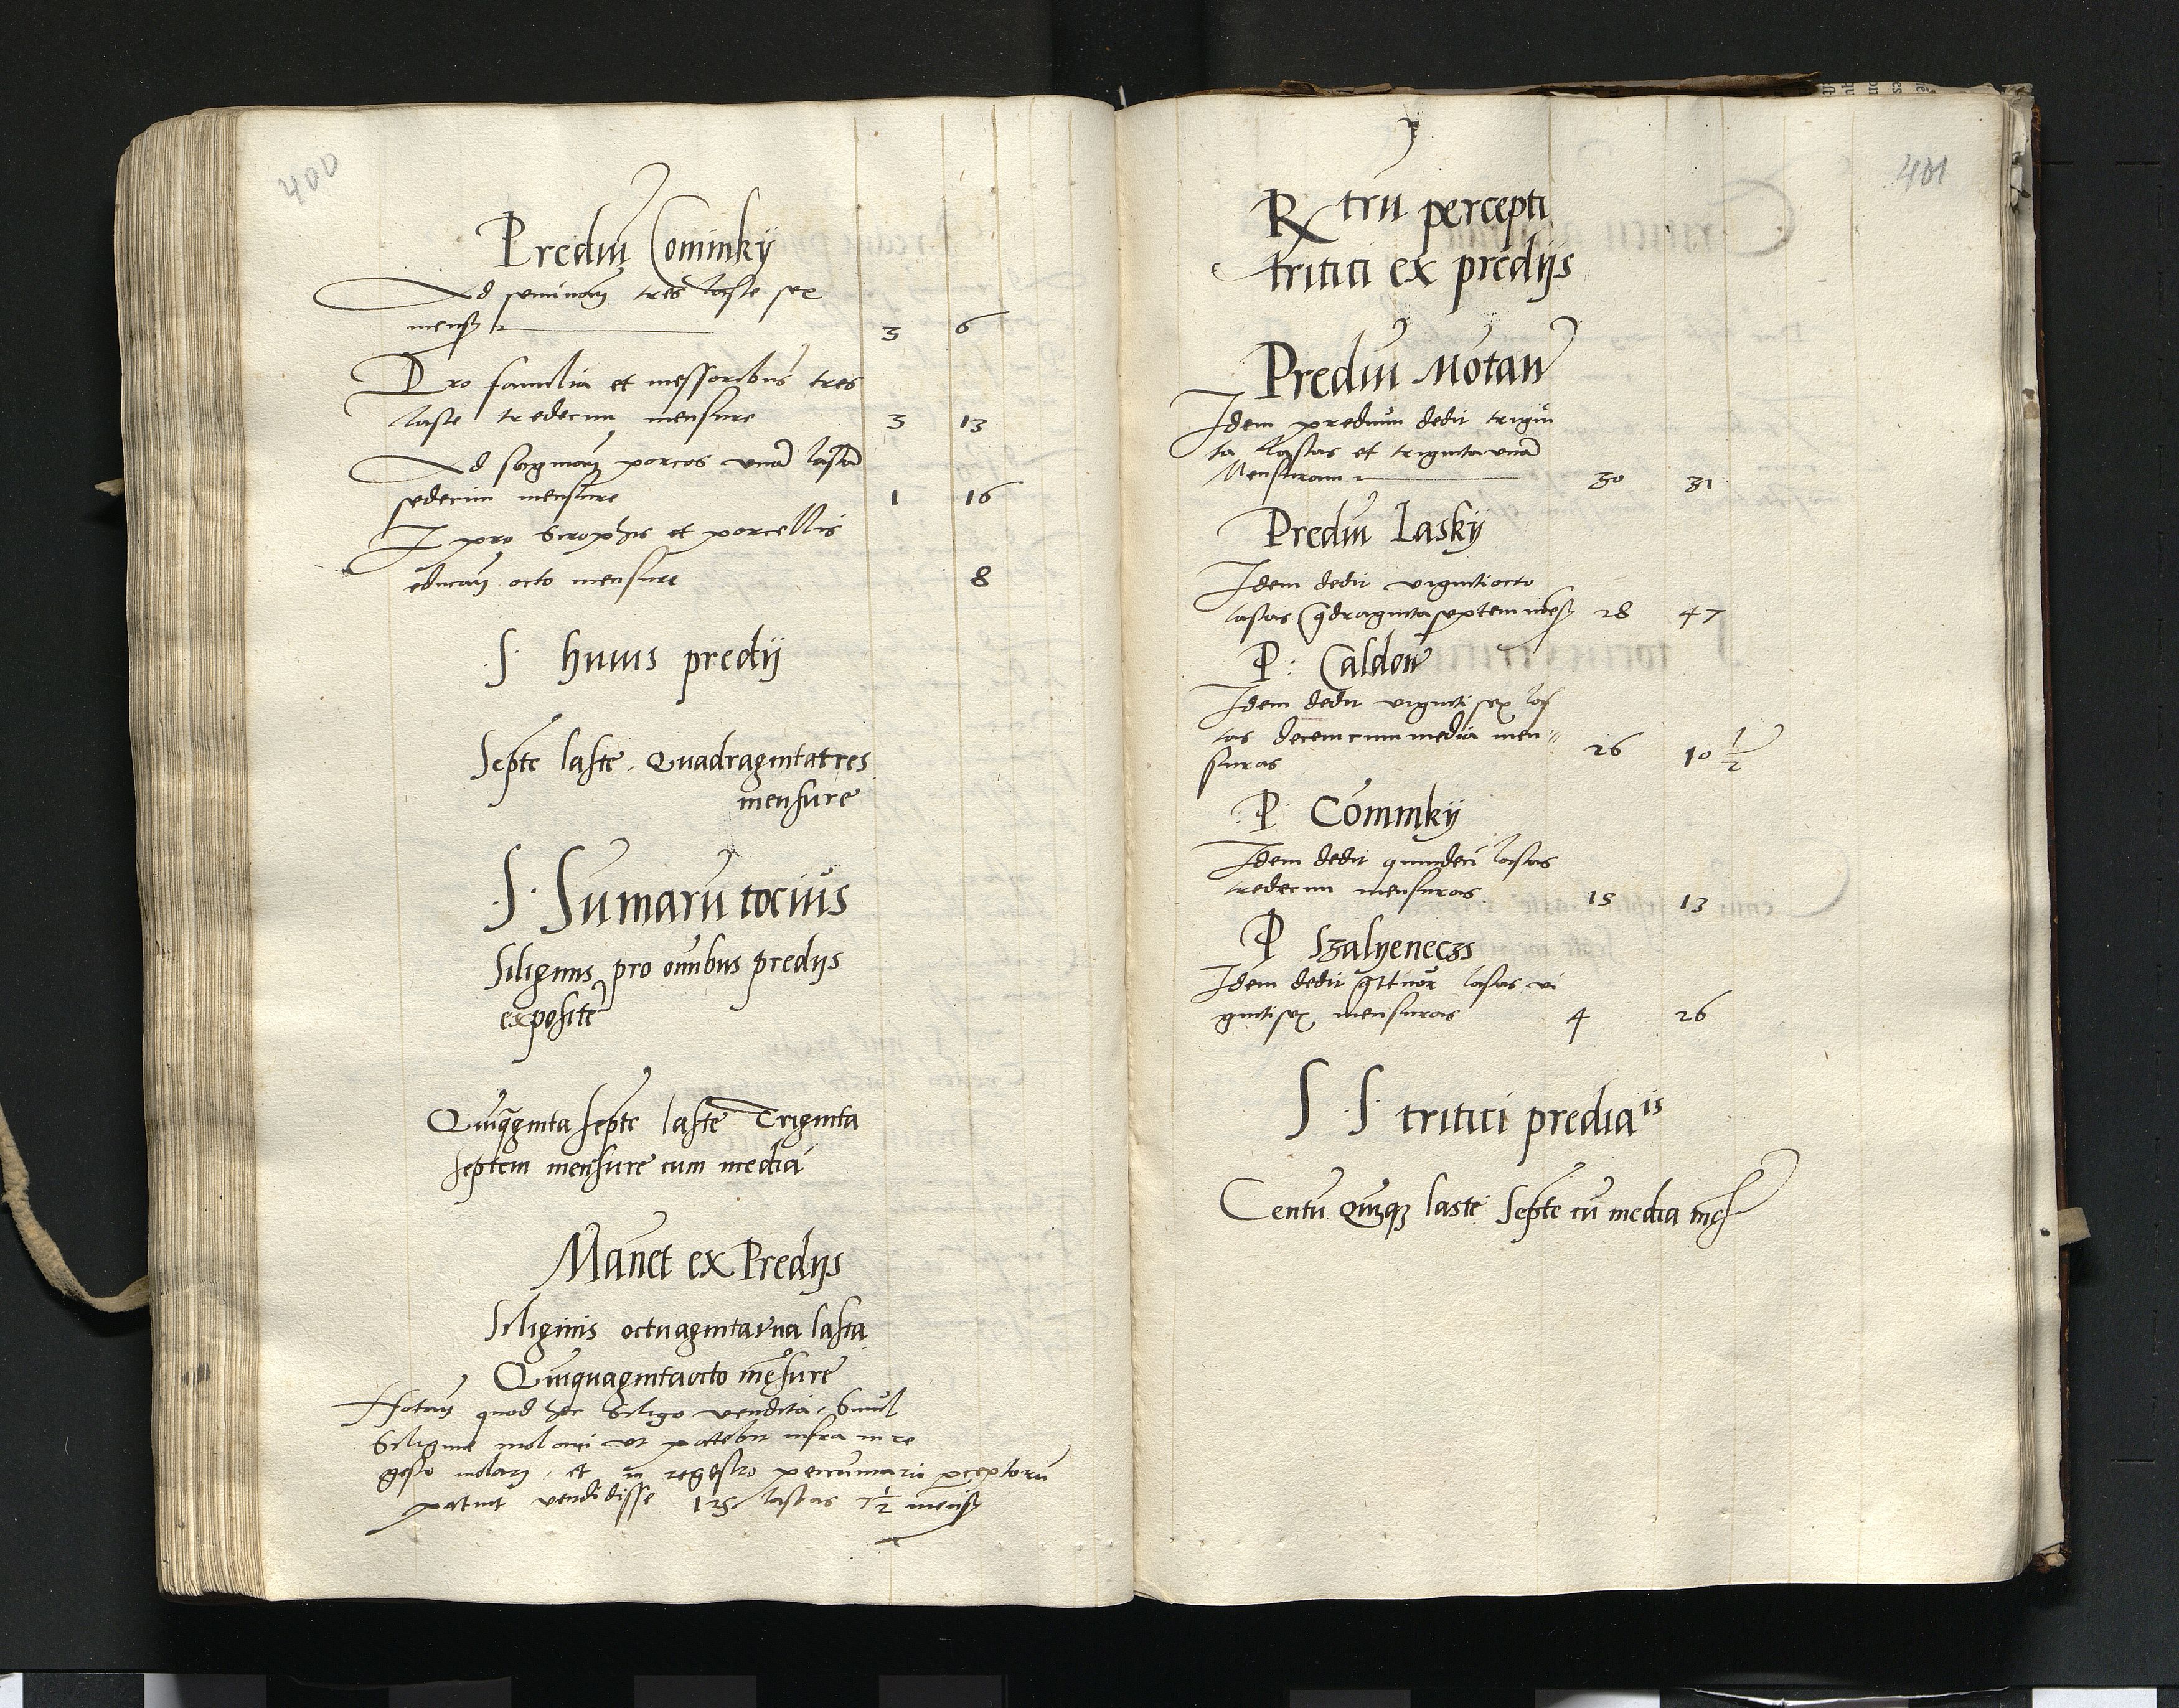 400
Prediu Cominky
Ad seminan tres laste sex
mens 3 6
Pro familia et messoribus tres
laste tredecim mensure 3 13
Ad saginan porcos una lasta
sedecim mensure 1 16
I pro scrophis et porcellis
educan octo mensure 8
S huius predij
Septe laste Quadragintatres
mensure
S. Sumaru tocius
Siliginis pro omibus predijs
exposite
Quiqginta septe laste Triginta
septem mensure cum media
Manet ex Predijs
Siliginis octuagintauna lasta
Quiquagintaocto mesure
Notan quod hec Siligo vendita, Simul
Siligine molari ut patebit infra in re
gestro molari, et in regestro pecuniario pceptoru
patuit vendidisse 125 lastas 7 1/2 mens
401
Rtru percepti
tritici ex predijs
Prediu Notaw
Idem predium dedit trigin
ta lastas et trigintauna
Mensuram 30 31
Prediu Lasky
Idem dedit vigintiocto
lastas qdragintaseptem mes 28 47
P: Caldow
Idem dedit vigintisex las
tas decem cum media men=
suras 26 10 1/2
P Cominky
Idem dedit quindeci lastas
tredecim mensuras 15 13
P Szalyeneczs
Idem dedit qttuor lastas vi
gintisex mensuras 4 26
S S. tritici prediais
Centu Quiqz laste Septe cu media mes